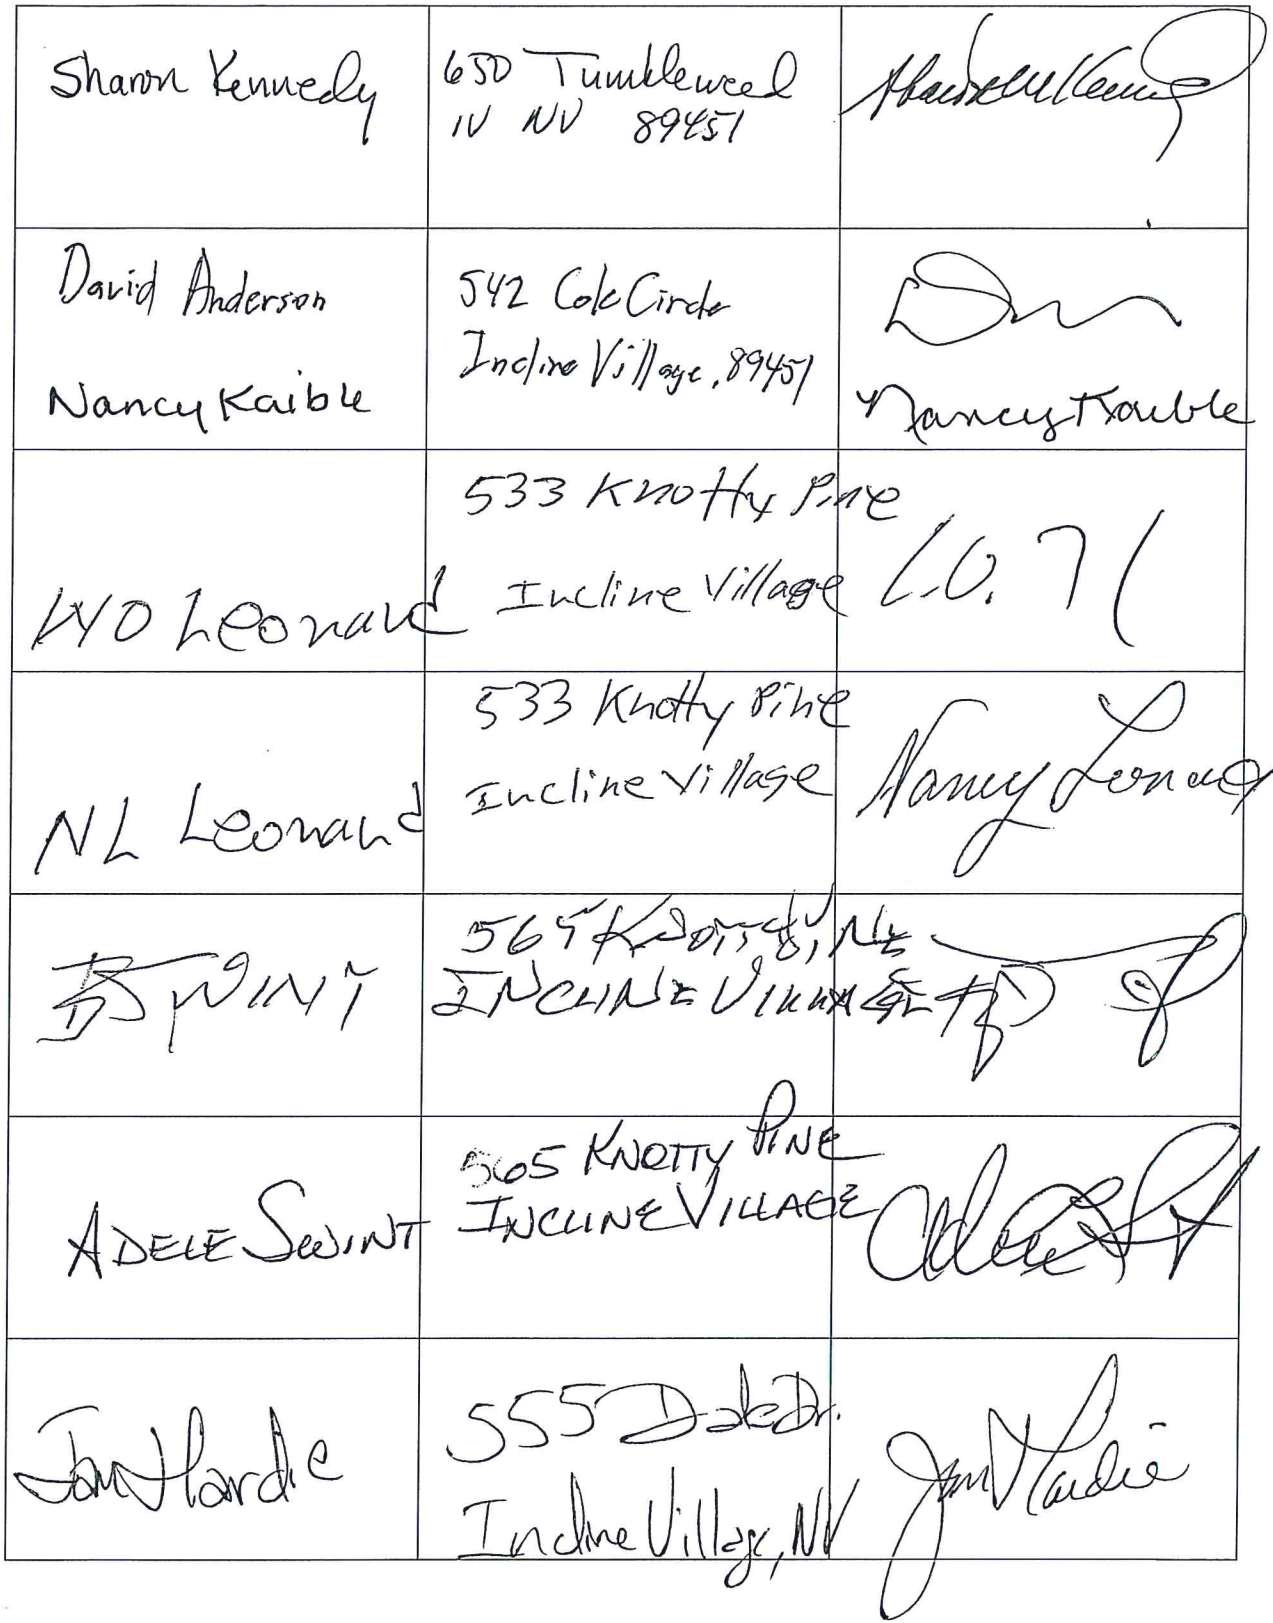 Sharon Kennedy
650 Tumbleweed
IV NV 89451
David Anderson
Nancy Kaible
542 Cole Circle
Incline Village, 89451
Nancy Kaible
WO Leonard
533 Knotty Pine
Incline Village
NL Leonard
533 Knotty Pine
Incline Village
Nancy Leonard
SWINT
565 KNOTTY PINE
INCLINE VILLAGE
ADELE SWINT
565 KNOTTY PINE
INCLINE VILLAGE
Hardie
555 Dale Dr.
Incline Village, NV
Hardie